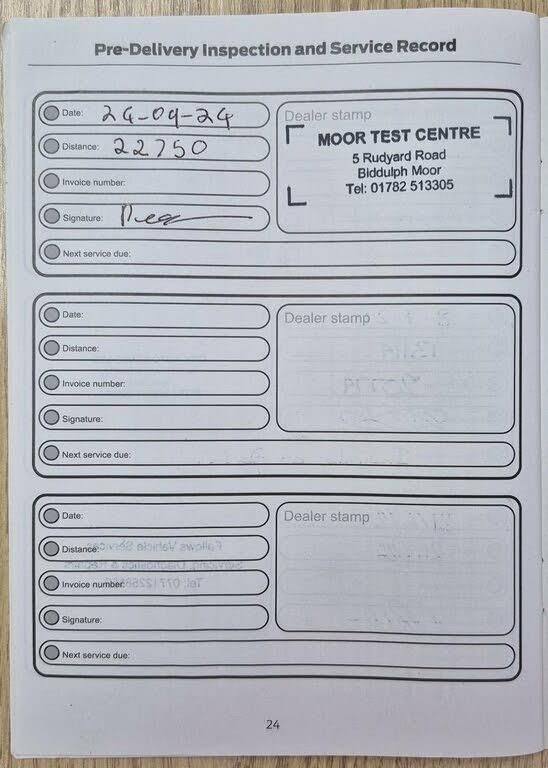 Pre-Delivery Inspection and Service Record
Date: 24-09-24
Distance: 22750
Invoice number:
Signature:
Next service due:
Dealer stamp
MOOR TEST CENTRE
5 Rudyard Road
Biddulph Moor
Tel: 01782 513305
Date:
Distance:
Invoice number:
Signature:
Next service due:
Dealer stamp
Date:
Distance:
Invoice number:
Signature:
Next service due:
Dealer stamp
24